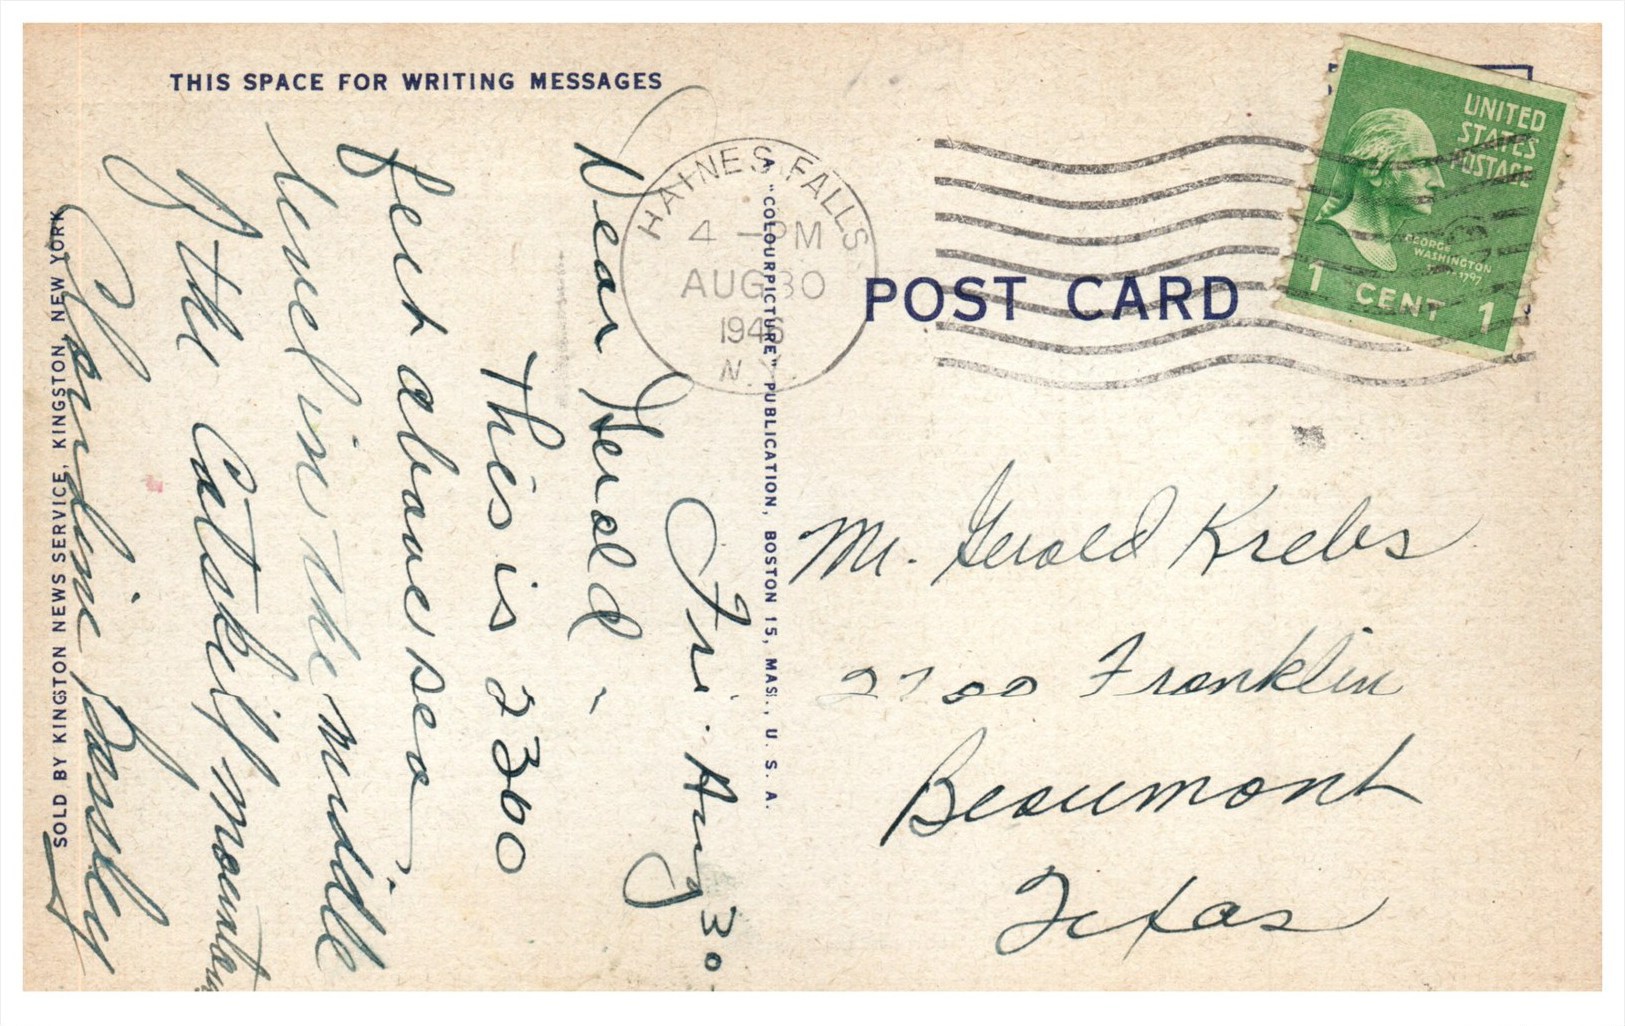 THIS SPACE FOR WRITING MESSAGES
Fri. Aug 30
Dear Gerald,
This is 2300
feet above sea
level in the middle
of the Catskill mountains
SOLD BY KINGSTON NEWS SERVICE, KINGSTON, NEW YORK
A "COLOURPICTURE" PUBLICATION, BOSTON 15, MASS., U. S. A.
HAINES FALLS
4 - PM
AUG 30
1946
N.Y.
POST CARD
UNITED
STATES
POSTAGE
GEORGE
WASHINGTON
1797
1 CENT 1
Mr. Gerald Krebs
2700 Franklin
Beaumont
Texas